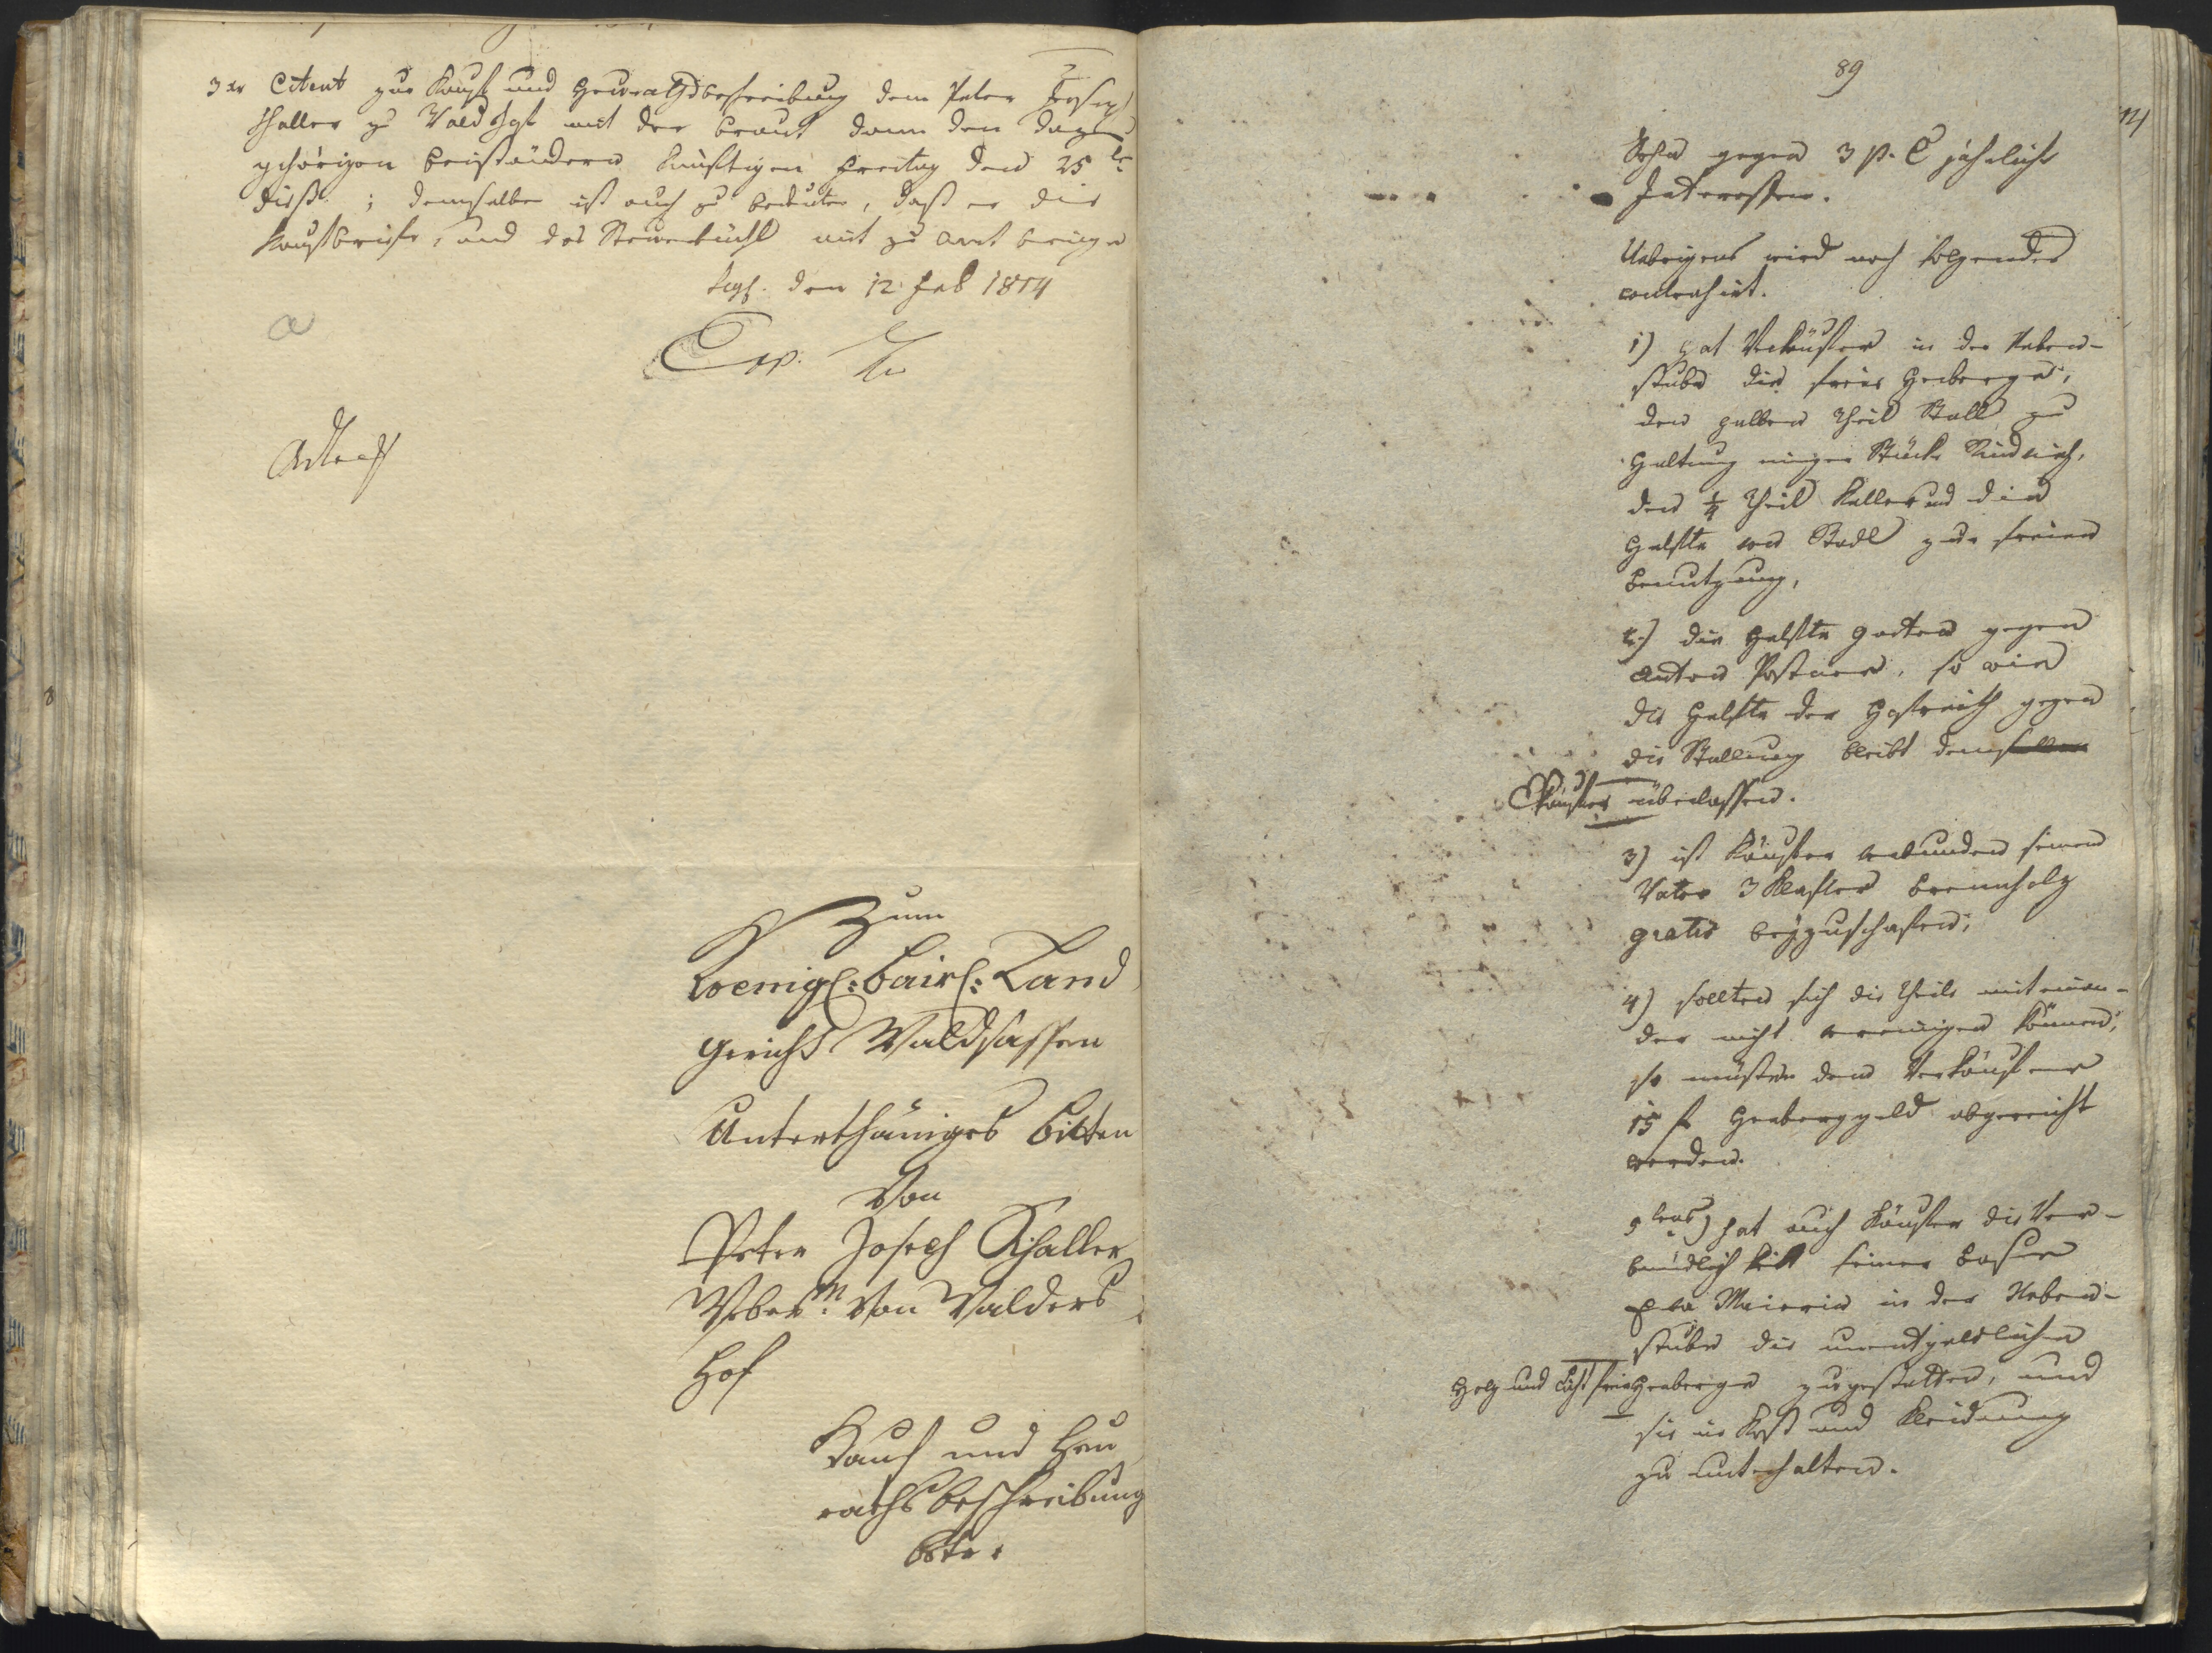 3 xr Citent zur Kaufs und Heuraths beschreibung dem Peter Joseph
Schaller zu Waldshof mit der Braut dann den dazu
gehörigen Beiständern künftigen Freitag den 25te
dieß ; demselben ist auch zu bedeuten, daß er die
Kaufbriefe, und das Steuerbüchl mit zu Amt bringe
den 12. Feb 1814
Zum
Koenigl: bairl: Land
Gericht Waldsassen
Unterthäniges Bitten
Von
Peter Joseph Schaller
Weber M: von Walders
Hof
Kauf und Heu
raths beschreibung
89
Sohn gegen 3 p. C jährliche
Interessen.
Uebrigens wird noch folgendes
contrahirt.
1) hat Verkäufer in der Neben-
stube die freie Herberge,
den halben Theil Stall zu
Haltung einiger Stücke Rindvieh,
den ¼ Theil Keller und die
Helfte am Stadl zur freien
Benutzung,
2.) die Helfte Garten gegen
Anton Postner, so wie
die Helfte der Hofreith gegen
die Stallung bleibt demselben
Käufer überlassen.
3) ist Käufer verbunden seinem
Vater 3 Klafter Brennholz
gratis beyzuschafen;
4) sollten sich die Theile miteinan-
der nicht vereinigen können,
so müßten dem Verkäufer
15 f Herberggeld abgereicht
werden.
5tens) hat auch Käufer die Ver-
bindlichkeit seiner Base
Eva Maierin in der Neben-
stube die unentgeldlichen
Holz und Licht frei Herberge zugestatten, und
sie in Kost und Kleidung
zu unterhalten.